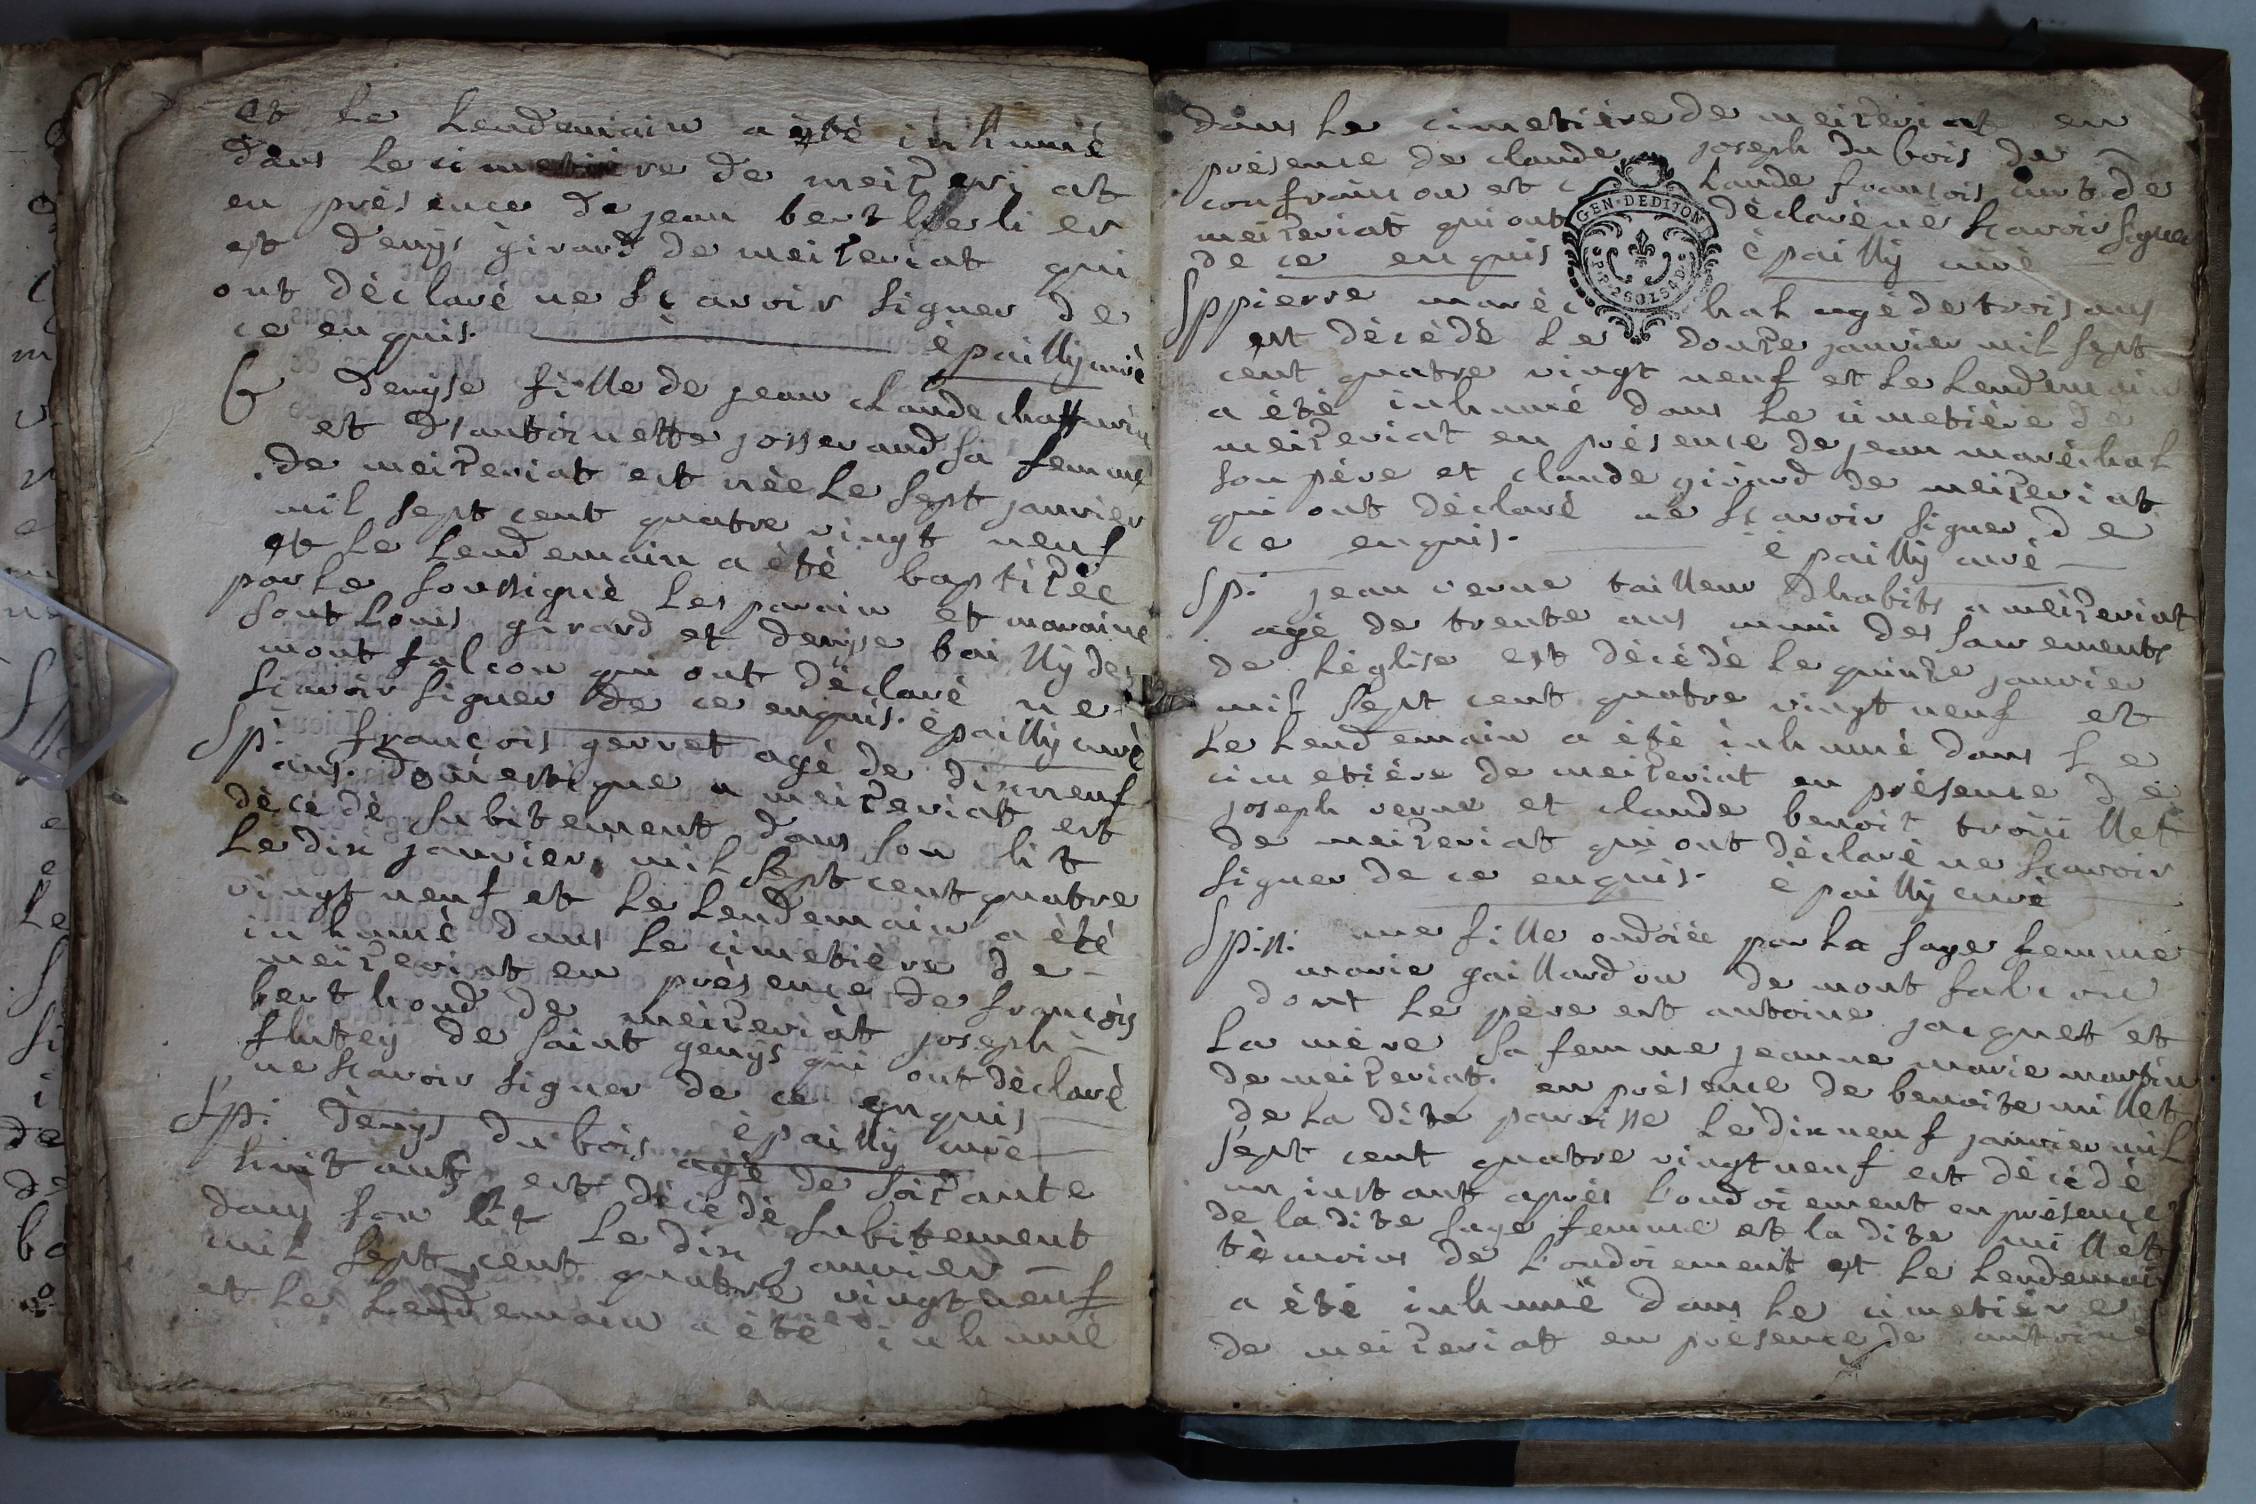 et le lendemain a été inhumé
dans le cimetière de meizeriat
en présence de jean berthelier
et denys girard de meizeriat qui
ont déclaré ne sçavoir signer de
ce enquis. épailly curé
B denyse fille de jean claude
et d'antoinette josserand sa femme
de meizeriat est née le sept janvier
mil sept cent quatre vingt neuf
et le lendemain a été baptizée
par le soussigné les parain et maraine
sont louis girard et denyse bailly de
montfalcon qui ont déclaré ne
sçavoir signer de ce enquis. épailly curé
Sp. françois gervet agé de dixneuf
ans. domestique a meizeriat est
décédé subitement dans son lit
le dix janvier mil sept cent quatre
vingt neuf et le lendemain a été
inhumé dans le cimetière de
meizeriat en présence de françois
berthoud de meizeriat joseph
flutey de saint genys qui ont déclaré
ne sçavoir signer de ce enquis
épailly curé
Sp. denys dubois agé de soizante
huit ans est décédé subitement
dans son lit le dix janvier
mil sept cent quatre vingt neuf
et le lendemain a été inhumé
dans le cimetière de meizeriat en
présence de claude joseph dubois de
confranson et claude françois curt de
meizeriat qui ont déclaré ne sçavoir signer
de ce enquis épailly curé
GEN·DE DIJON
Sp pierre maréchal agé de trois ans
est décédé le douze janvier mil sept
cent quatre vingt neuf et le lendemain
a été inhumé dans le cimetière de
meizeriat en présence de jean maréchal
son père et claude girard de meizeriat
qui ont déclaré ne sçavoir signer de
ce enquis. épailly curé
Sp. jean verne tailleur d'habits a meizeriat
agé de trente ans muni des sacrements
de l'église est décédé le quinze janvier
mil sept cent quatre vingt neuf et
le lendemain a été inhumé dans le
cimetière de meizeriat en présence de
joseph verne et claude benoit trouillet
de meizeriat qui ont déclaré ne sçavoir
signer de ce enquis. épailly curé
Sp.n. une fille ondoiée par la sage femme
marie gaillardon de montfalcon
dont le pere est antoine jacquet et
la mère sa femme jeanne marie martin
de meizeriat. en présence de benoite millet
de la dite paroisse le dixneuf janvier mil
sept cent quatre vingt neuf est décédé
un instant après l'ondoiement en présence
de la dite sage femme et la dite millet
témoins de l'ondoiement et le lendemain
a été inhumé dans le cimetière
de meizeriat en présence de antoine